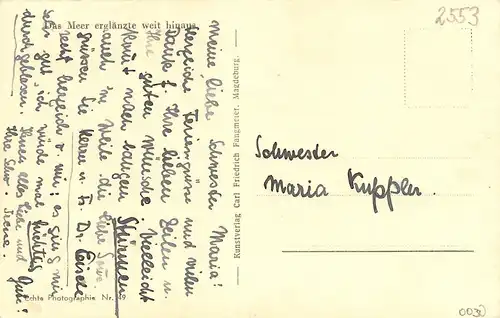 Das Meer erglänzte weit hinaus.
Meine liebe Schwester Maria!
Herzliche Feriengrüsse und vielen
Dank f. Ihre lieben Zeilen u.
Ihre guten Wünsche. Vielleicht
kommt nach langem Stürmen
auch in Weite die liebe Sonne.
Grüssen Sie Herrn u. Fr. Dr. Eisele
recht herzlich v. mir; es ging mir
sehr gut, ich wurde mal tüchtig
durchgeblasen. Ihnen alles Liebe und Gute!
Ihre Schw. Irene.
Echte Photographie Nr. 49
Kunstverlag Carl Friedrich Fangmeier, Magdeburg.
2553
Schwester
Maria Kuppler.
0030